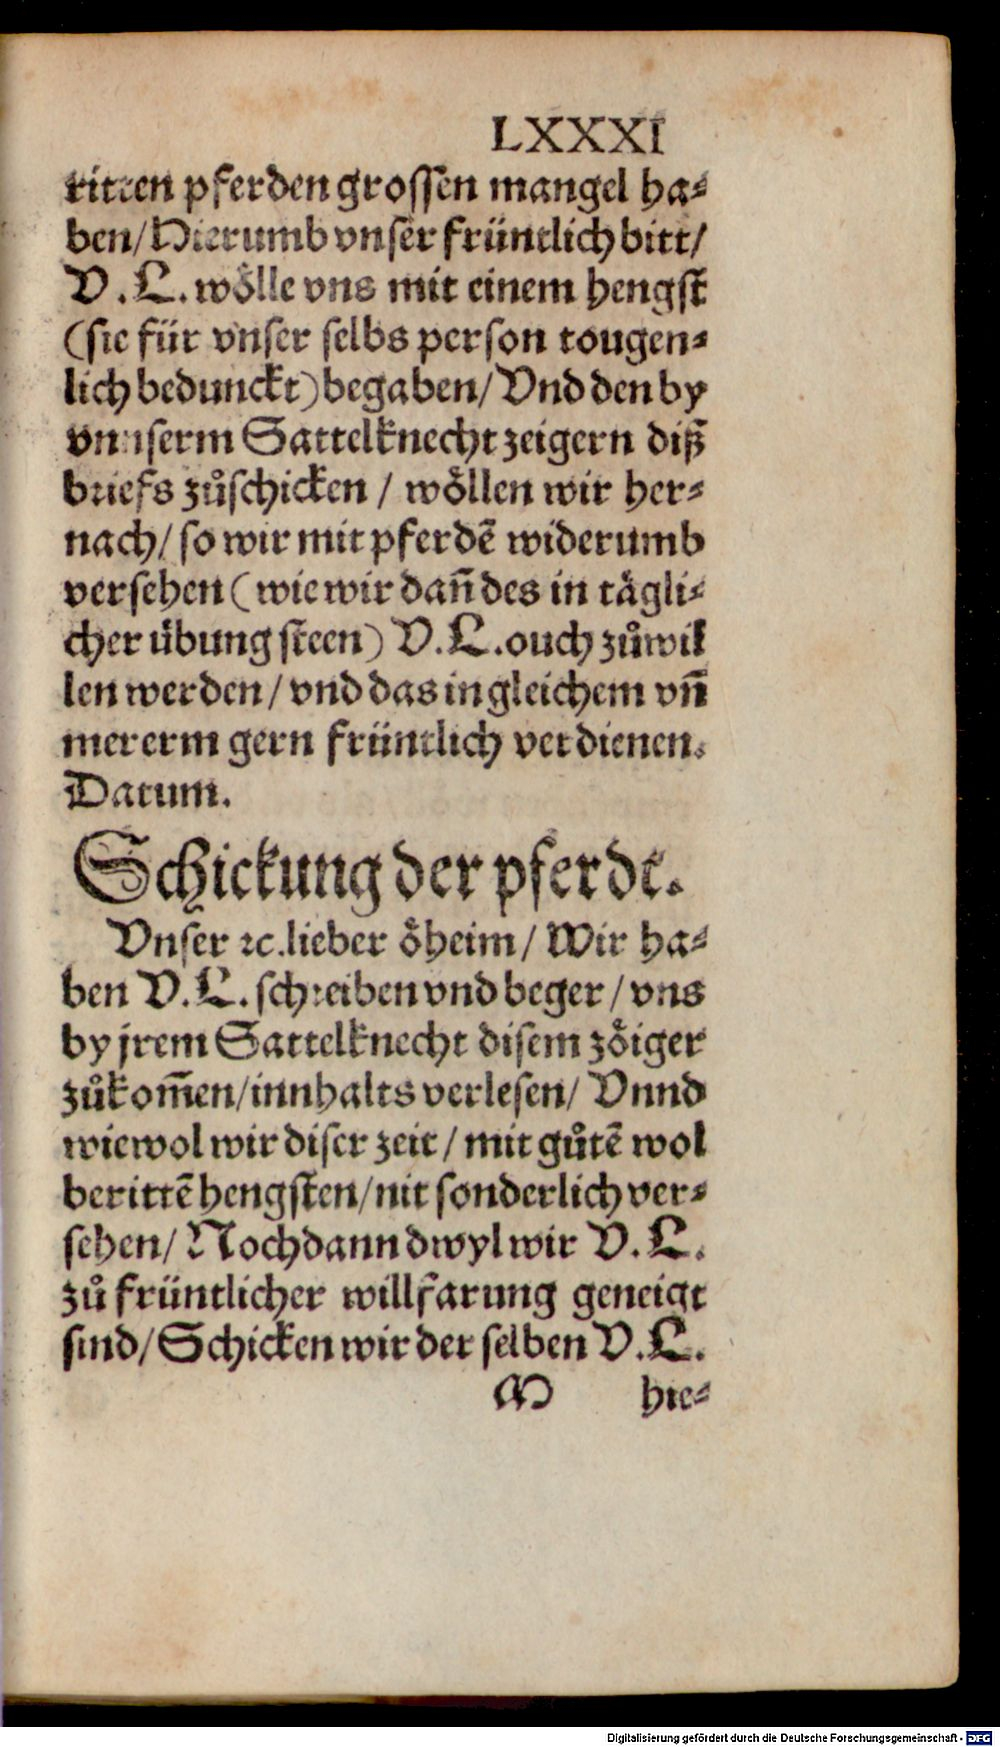 LXXXI
ritten pferden grossen mangel ha⸗
ben/Hierumb vnser früntlich bitt/
V.L. wölle vns mit einem hengst
(sie für vnser selbs person tougen⸗
lich bedunckt) begaben/Vnd den by
vnnserm Sattelknecht zeigern diß
briefs zůschicken / wöllen wir her⸗
nach/ so wir mit pferdē widerumb
versehen (wie wir dañ des in tägli⸗
cher übung steen) V.L. ouch zůwil
len werden/ vnd das in gleichem vñ
mererm gern früntlich verdienen.
Datum.
Schickung der pferdt.
Vnser ꝛc. lieber öheim/ Wir ha⸗
ben V.L. schreiben vnd beger/ vns
by jrem Sattelknecht disem zöiger
zůkom̄en/innhalts verlesen/ Vnnd
wiewol wir diser zeit/ mit gůtē wol
berittē hengsten/nit sonderlich ver⸗
sehen/ Nochdann dwyl wir V.L.
zů früntlicher willfarung geneigt
sind/ Schicken wir der selben V.L.
M hie⸗
Digitalisierung gefördert durch die Deutsche Forschungsgemeinschaft - DFG